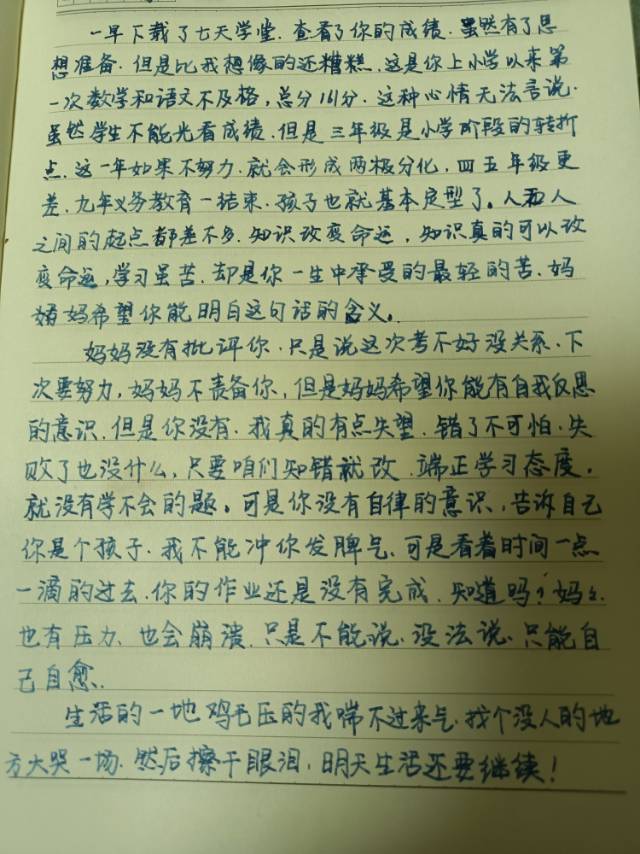 一早下载了七天学堂.查看了你的成绩.虽然有了思
想准备.但是比我想像的还糟糕.这是你上小学以来第
一次数学和语文不及格,总分161分.这种心情无法言说.
虽然学生不能光看成绩.但是三年级是小学阶段的转折
点.这一年如果不努力.就会形成两极分化,四五年级更
差.九年义务教育一结束.孩子也就基本定型了。人和人
之间的起点都差不多.知识改变命运,知识真的可以改
变命运,学习虽苦.却是你一生中承受的最轻的苦.妈
妈希望你能明白这句话的含义。
妈妈没有批评你.只是说这次考不好没关系.下
次要努力,妈妈不责备你,但是妈妈希望你能有自我反思
的意识.但是你没有.我真的有点失望.错了不可怕.失
败了也没什么,只要咱们知错就改.端正学习态度,
就没有学不会的题。可是你没有自律的意识,告诉自己
你是个孩子.我不能冲你发脾气.可是看着时间一点
一滴的过去.你的作业还是没有完成.知道吗?妈々
也有压力.也会崩溃.只是不能说.没法说.只能自
己自愈.
生活的一地鸡毛压的我喘不过来气.找个没人的地
方大哭一场.然后擦干眼泪,明天生活还要继续!